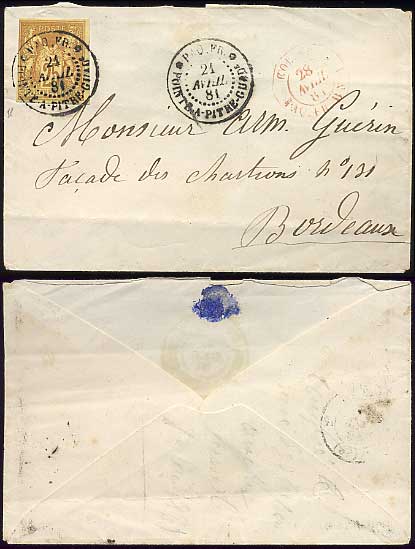 POSTE
PAQ. FR.
21
AVRIL
81
POINTE-A-PITRE-GUAD
PAQ. FR.
21
AVRIL
81
POINTE-A-PITRE-GUAD
COL.
28
AVRIL
81
Monsieur Arm. Guérin
Façade des Chartrons n° 131
Bordeaux